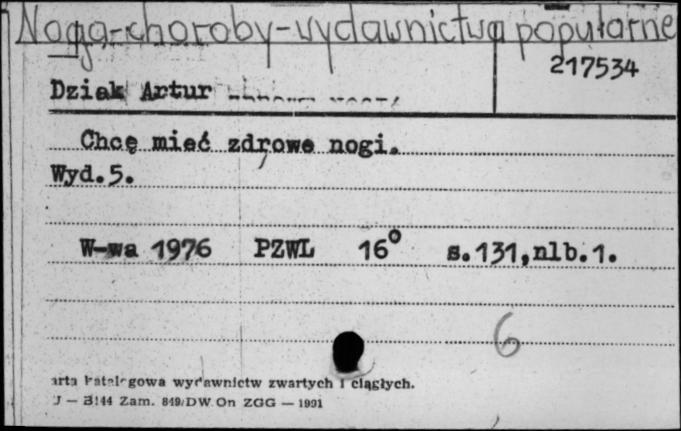 Noga-choroby-wydawnictwa popularne
217534
Dziak Artur
Chcę mieć zdrowe nogi.
Wyd.5.
W-wa 1976 PZWL 16° s.131,nlb.1.
6
arta katalogowa wydawnictw zwartych i ciągłych.
J — 3144 Zam. 849/DW On ZGG — 1991